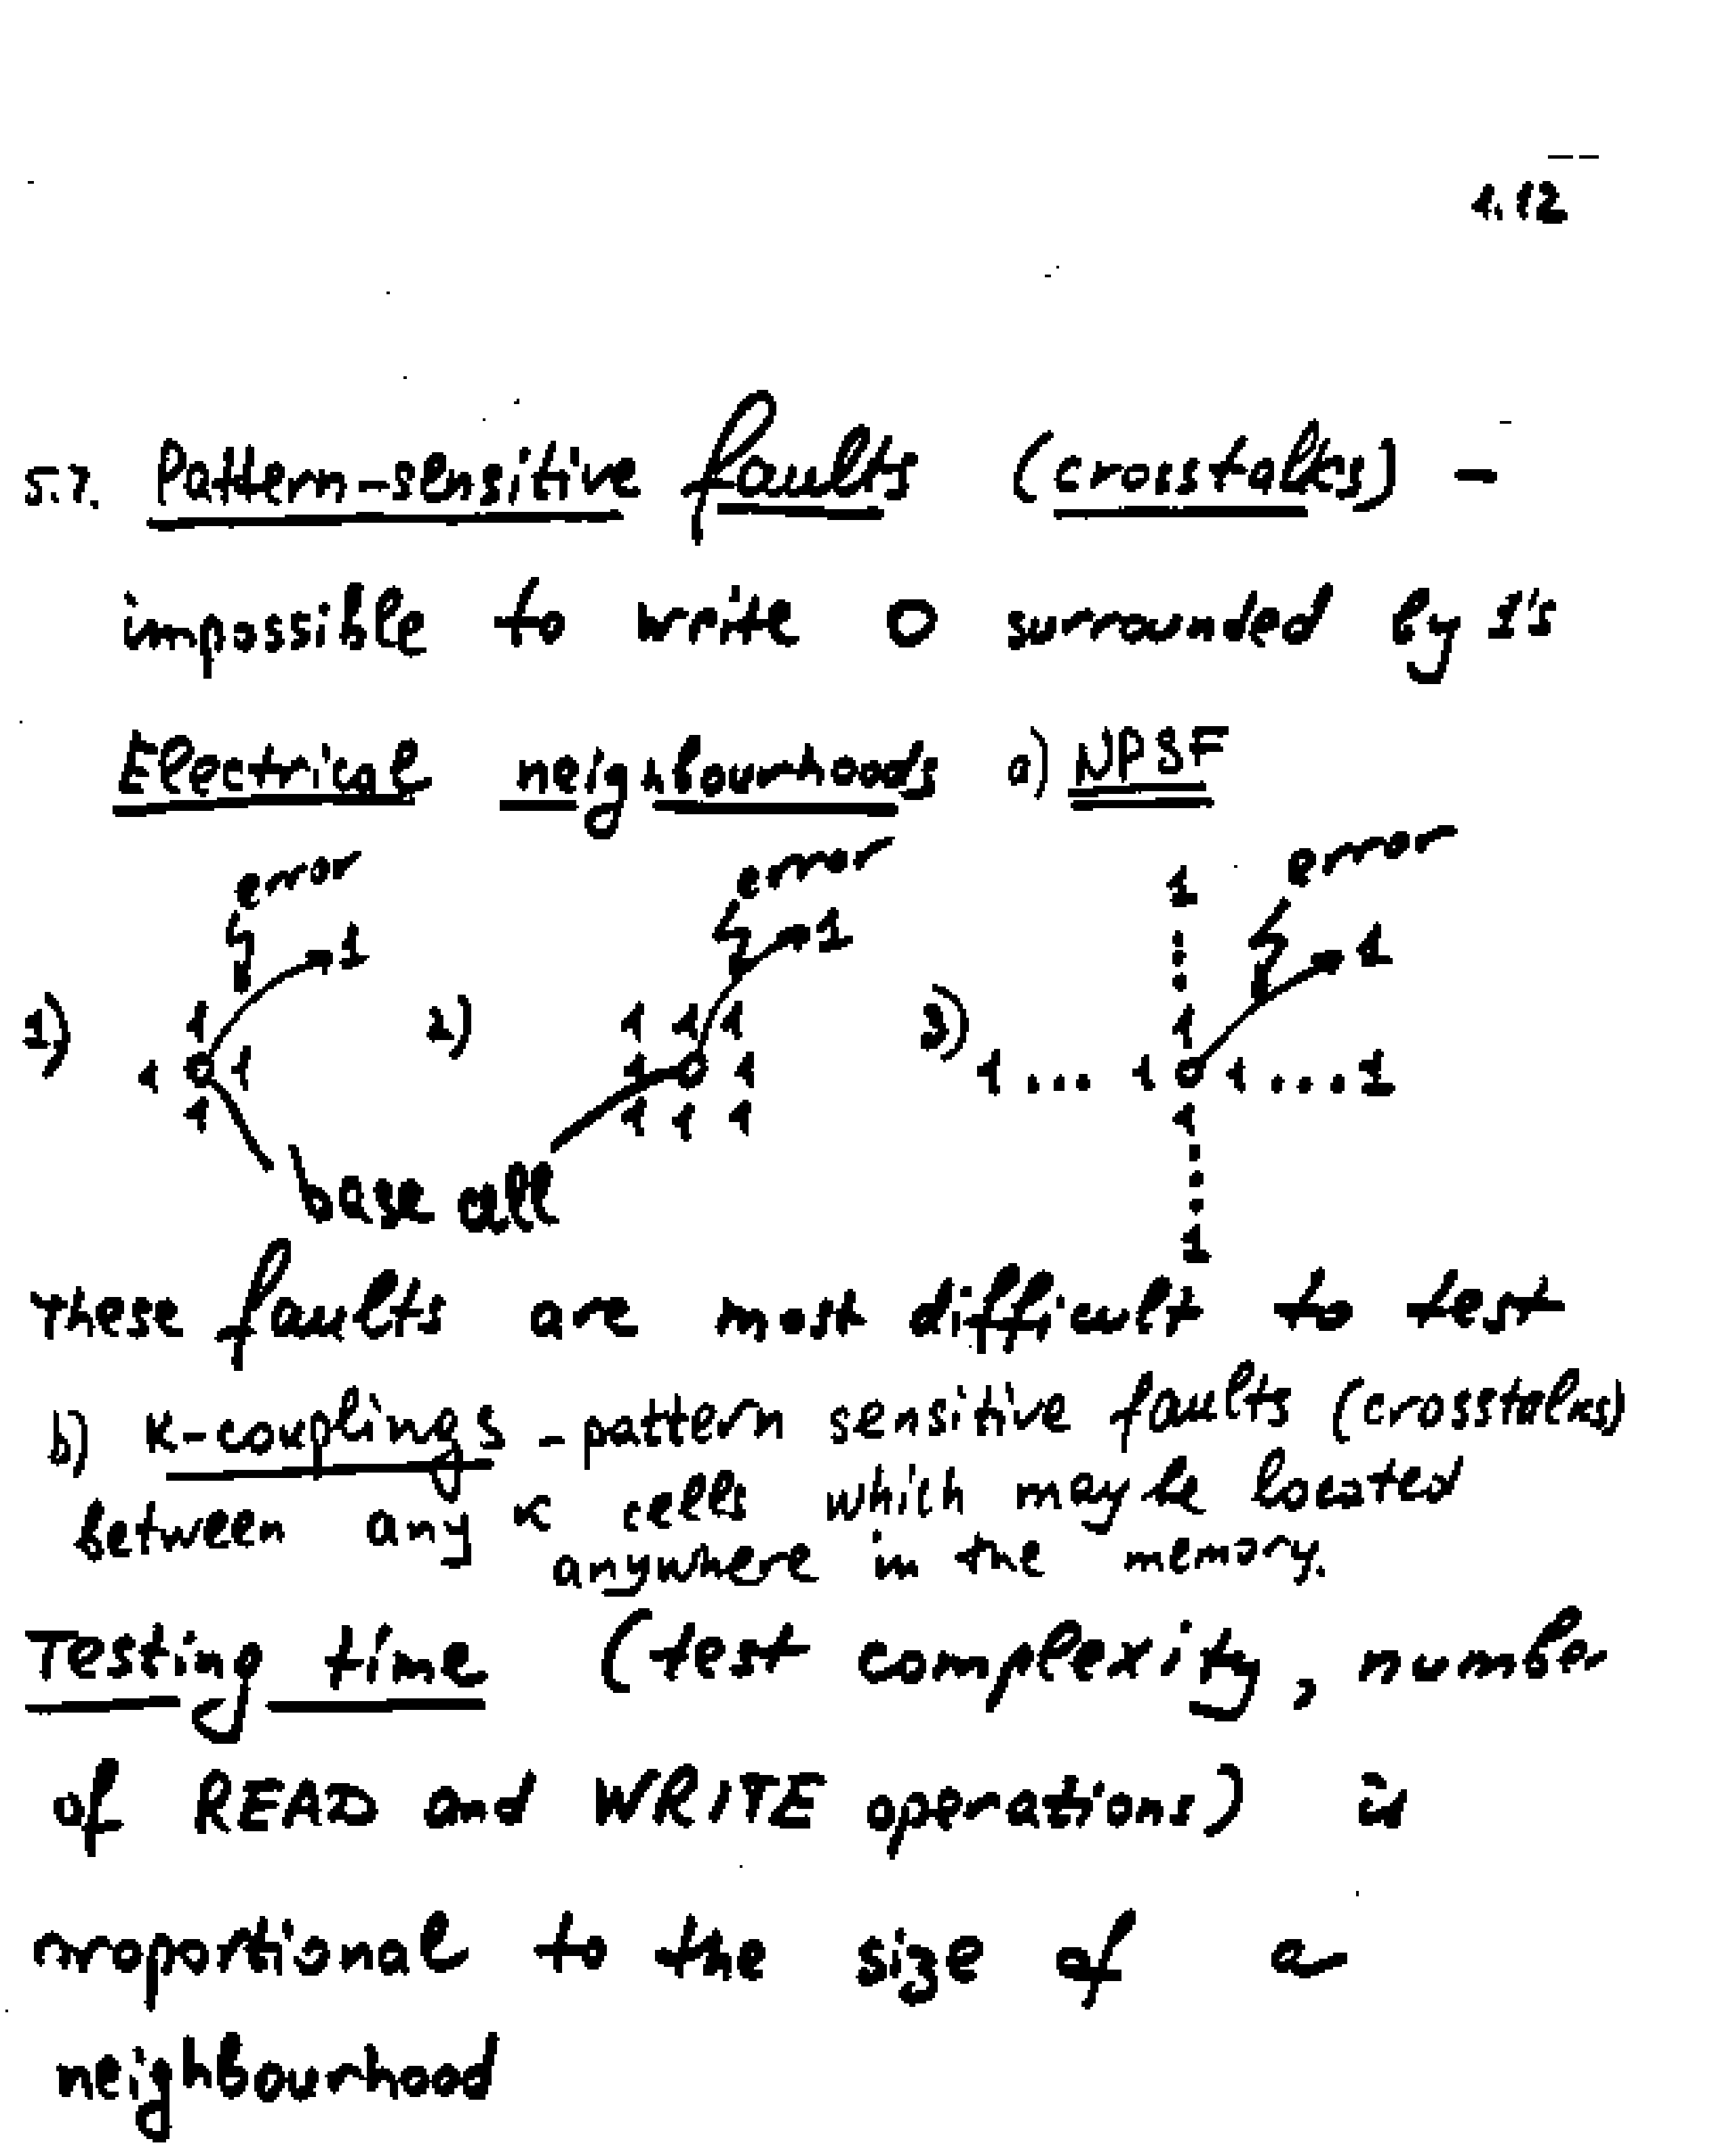 1.12
5.7. Pattern-sensitive faults (crosstalks) -
impossible to write 0 surrounded by 1's
Electrical neighbourhoods a) NPSF
error error 1 error
1 1 1
1) 1 2) 1 1 1 3) 1
1 0 1 1 0 1 1 ... 1 0 1 ... 1
1 1 1 1 1
base cell
1
These faults are most difficult to test
b) K-couplings - pattern sensitive faults (crosstalks)
between any K cells which may be located
anywhere in the memory.
Testing time (test complexity, number
of READ and WRITE operations) is
proportional to the size of a
neighbourhood